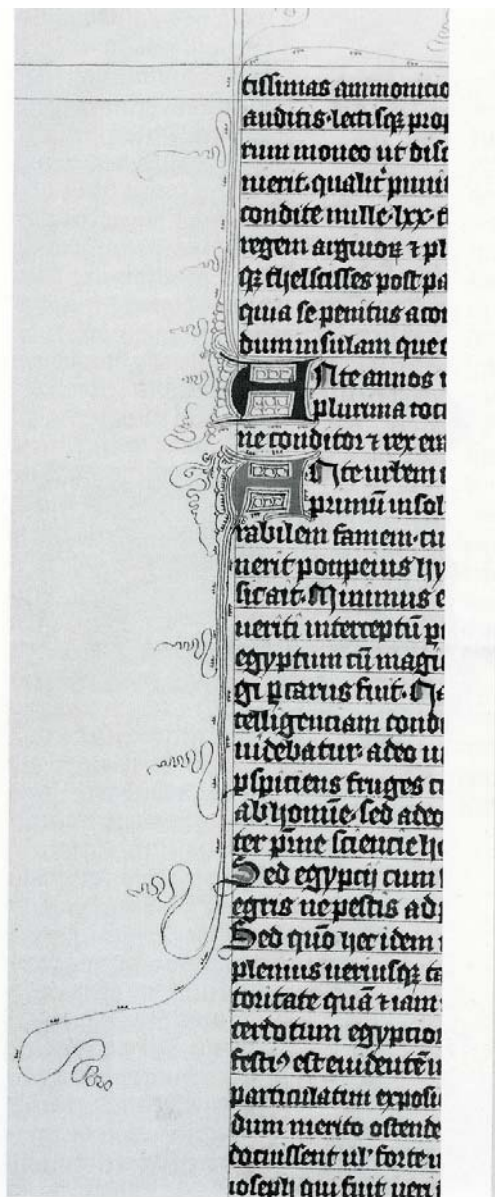 tissimas ammonicio
auditis·lectisqꝫ prop
tum moueo ut disc
merit·qualit᷑ punit
condite mille·lxx·t
regem argiuoꝝ ⁊ pl
qꝫ thelscisses post pa
quia se penitus acor
dum insulam que c
ANte annos
plurima toci
ne conditor ⁊ rex
ANte urbem
primū insol
rabilem famem·cu
uerit ponpeius hy
sic ait·Minimus e
ueriti interceptū p
egyptum cū magic
gi ꝑcarus fuit·Na
telligenciam cond
uidebatur·adeo u
ꝑspiciens fruges
ab homīe·sed adeo
ter p̄me sciencie h
Sed egypcij cum
egris ne pestis ad
Sed quō hec idem
plenius ueriusqꝫ ta
toritate quā ⁊ iam
cerdotum egypcior
festiꝰ est euidentē
particulatim exposi
dum merito ostende
docuissent ul' forte
ioseph qui fuit ueri